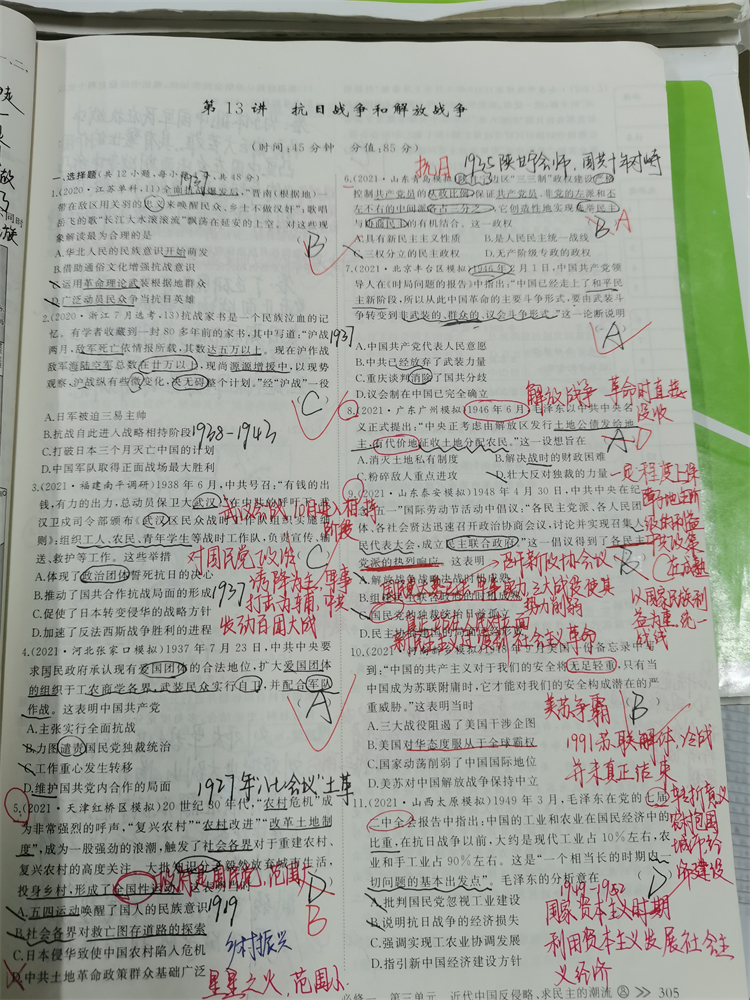 第 13 讲 抗日战争和解放战争
(时间:45分钟 分值:85分)
一、选择题(共12小题,每小 共48分)
1937
1.(2020·江苏单科,11)全面抗战爆发后,“晋南(根据地)
带在敌区用关羽的忠义来唤醒民众,乡土不做汉奸”;歌唱
岳飞的歌“长江大水滚滚流”飘荡在延安的上空。对这些现
象解读最为合理的是
B
A.华北人民的民族意识开始萌发
B.借助通俗文化增强抗战意识
C.运用革命理论武装根据地群众
D.广泛动员民众争当抗日英雄
2.(2020·浙江7月选考,13)抗战家书是一个民族泣血的记
忆。有学者收藏到一封80多年前的家书,其中写道:“沪战
两月,敌军死亡依情报所载,其数达五万以上。现在沪作战
敌军海陆空军总数在廿万以上,现尚源源增援中,以现势
观察,沪战纵有些微变化,决无碍整个计划。”经“沪战”一役
1937
C
A.日军被迫三易主帅
B.抗战自此进入战略相持阶段
1938-1943
C.打破日本三个月灭亡中国的计划
D.中国军队取得正面战场最大胜利
3.(2021·福建南平调研)1938年6月,中共号召:“有钱的出
钱,有力的出力,总动员保卫大武汉
汉卫戍司令部颁布《武汉区民众战时 组织实施细
则》:组织工人、农民、青年学生等战时工作队,负责宣传、输
送、救护等工作。这些举措
C
武汉会战,10月进入相持
阶段
A.体现了政治团体誓死抗日的决心
B.推动了国共合作抗战局面的形成
C.促使了日本转变侵华的战略方针
D.加速了反法西斯战争胜利的进程
对国民党政治
诱降为主,军事
打击为辅,中共
发动百团大战
1937
4.(2021·河北张家口模拟)1937年7月23日,中共中央要
求国民政府承认现有爱国团体的合法地位,扩大爱国团体
的组织于工农商学各界,武装民众实行自卫,并配合军队
作战。这表明中国共产党
A
A.主张实行全面抗战
B.力图谴责国民党独裁统治
C.工作重心发生转移
D.维护国共党内合作的局面
1927年“八七会议”土革
5.(2021·天津红桥区模拟)20世纪30年代,“农村危机”成
为非常强烈的呼声,“复兴农村”“农村改进”“改革土地制
度”,成为一股强劲的浪潮,触发了社会各界对于重建农村、
复兴农村的高度关注。大批知识分子毅然放弃城市生活,
投身乡村,形成了全国性
D
B
A.五四运动唤醒了国人的民族意识
1919
B.社会各界对救亡图存道路的探索
C.日本侵华致使中国农村陷入危机
乡村振兴
D.中共土地革命政策群众基础广泛
星星之火,范围小
抗日 1935陕甘宁会师,国共十年对峙
6.(2021·山东青岛 边区“三三制”政权建设严格
控制共产党员的人数比例,保证共产党员、非党的左派和不
左不右的中间派各占三分之一,它创造性地实现 民主
与协商民主的有机结合。这一政权
B A
A.具有新民主主义性质 B.是人民民主统一战线
C.三权分立的民主政权 D.无产阶级专政的政权
7.(2021·北京丰台区模拟)1946年2月1日,中国共产党领
导人在《时局问题的报告》中指出:“中国已经走上了和平民
主新阶段,所以从此中国革命的主要斗争形式,要由武装斗
争转变到非武装的、群众的、议会斗争形式。”这一论断说明
A
A.中国共产党代表人民意愿
B.中共已经放弃了武装力量
C.重庆谈判消除了国共分歧
D.议会制在中国已完全确立
解放战争 革命时直接
没收
8.(2021·广东广州模拟)1946年6月,毛泽东以中共中央名
义正式提出:“中央正考虑由解放区发行土地公债发给地
主,有代价地征收土地分配农民。”这一设想旨在
A D
A.消灭土地私有制度 B.解决战时的财政困难
C.粉碎敌人重点进攻 D.壮大反对独裁的力量
9.(2021·山东泰安模拟)1948年4月30日,中共中央在纪
念“五一”国际劳动节活动中倡议:“各民主党派、各人民团
体、各社会贤达迅速召开政治协商会议,讨论并实现召集人
民代表大会,成立民主联合政府!”这一倡议得到了各民主
党派的热烈响应。这表明
B
C
召开新政协会议
A.解放战争战略决战时机成熟
三大战役使其
势力削弱
以国家民族利
益为重,统一
战线
10. 备忘录中写
到:“中国的共产主义对于我们的安全将无足轻重,只有当
中国成为苏联附庸时,它才能对我们的安全构成潜在的严
重威胁。”这表明当时
B
美苏争霸
A.三大战役阻遏了美国干涉企图
B.美国对华态度服从于全球霸权
C.国家动荡削弱了中国国际地位
D.美苏对中国解放战争保持中立
1991苏联解体,冷战
并未真正结束
11.(2021·山西太原模拟)1949年3月,毛泽东在党的七届
二中全会报告中指出:中国的工业和农业在国民经济中的
比重,在抗日战争以前,大约是现代工业占10%左右,农
业和手工业占90%左右。这是“一个相当长的时期内一
切问题的基本出发点”。毛泽东的分析意在
D
转折意义
农村包围
城市
A.批判国民党忽视工业建设
B.说明抗日战争的经济损失
C.强调实现工农业协调发展
D.指引新中国经济建设方针
1949-1952
国家资本主义时期
利用资本主义发展社会主
义经济
必修一 第三单元 近代中国反侵略、求民主的潮流 305